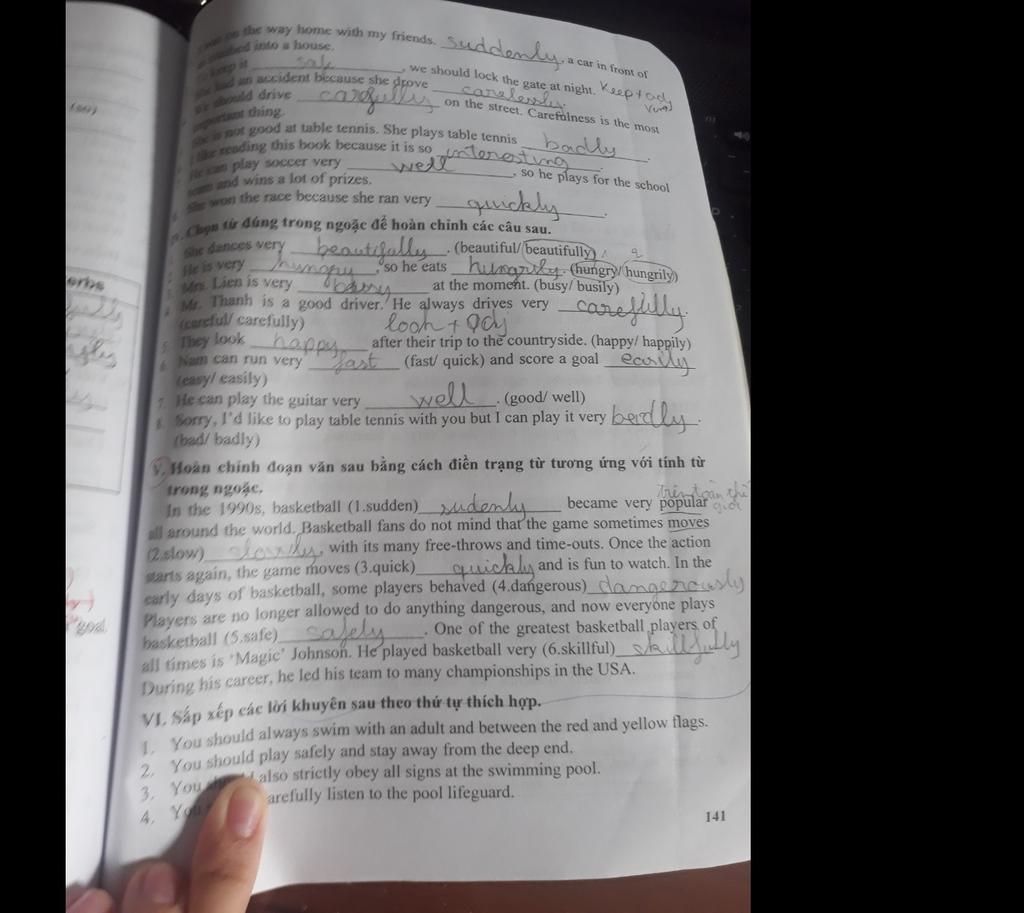 on the way home with my friends. suddenly, a car in front of
into a house.
keep it saf, we should lock the gate at night. Keep + adj
had an accident because she drove carelessly.
should drive carefully on the street. Carefulness is the most
important thing.
She is not good at table tennis. She plays table tennis badly.
I like reading this book because it is so interesting.
He can play soccer very well, so he plays for the school
team and wins a lot of prizes.
She won the race because she ran very quickly.
Chọn từ đúng trong ngoặc để hoàn chỉnh các câu sau.
She dances very beautifully. (beautiful/ beautifully)
He is very hungry, so he eats hungrily. (hungry/ hungrily)
Mrs. Lien is very busy at the moment. (busy/ busily)
4. Mr. Thanh is a good driver. He always drives very carefully.
(careful/ carefully) look + adj
5. They look happy after their trip to the countryside. (happy/ happily)
6. Nam can run very fast (fast/ quick) and score a goal easily
(easy/ easily)
7. He can play the guitar very well. (good/ well)
8. Sorry, I'd like to play table tennis with you but I can play it very badly.
(bad/ badly)
V. Hoàn chỉnh đoạn văn sau bằng cách điền trạng từ tương ứng với tính từ
trong ngoặc.
trên toàn thế giới
In the 1990s, basketball (1.sudden) sudenly became very popular
all around the world. Basketball fans do not mind that the game sometimes moves
(2.slow) slowly, with its many free-throws and time-outs. Once the action
starts again, the game moves (3.quick) quickly and is fun to watch. In the
early days of basketball, some players behaved (4.dangerous) dangerously
Players are no longer allowed to do anything dangerous, and now everyone plays
basketball (5.safe) safely. One of the greatest basketball players of
all times is 'Magic' Johnson. He played basketball very (6.skillful) skillfully
During his career, he led his team to many championships in the USA.
VI. Sắp xếp các lời khuyên sau theo thứ tự thích hợp.
1. You should always swim with an adult and between the red and yellow flags.
2. You should play safely and stay away from the deep end.
3. You also strictly obey all signs at the swimming pool.
4. You carefully listen to the pool lifeguard.
141
goal.